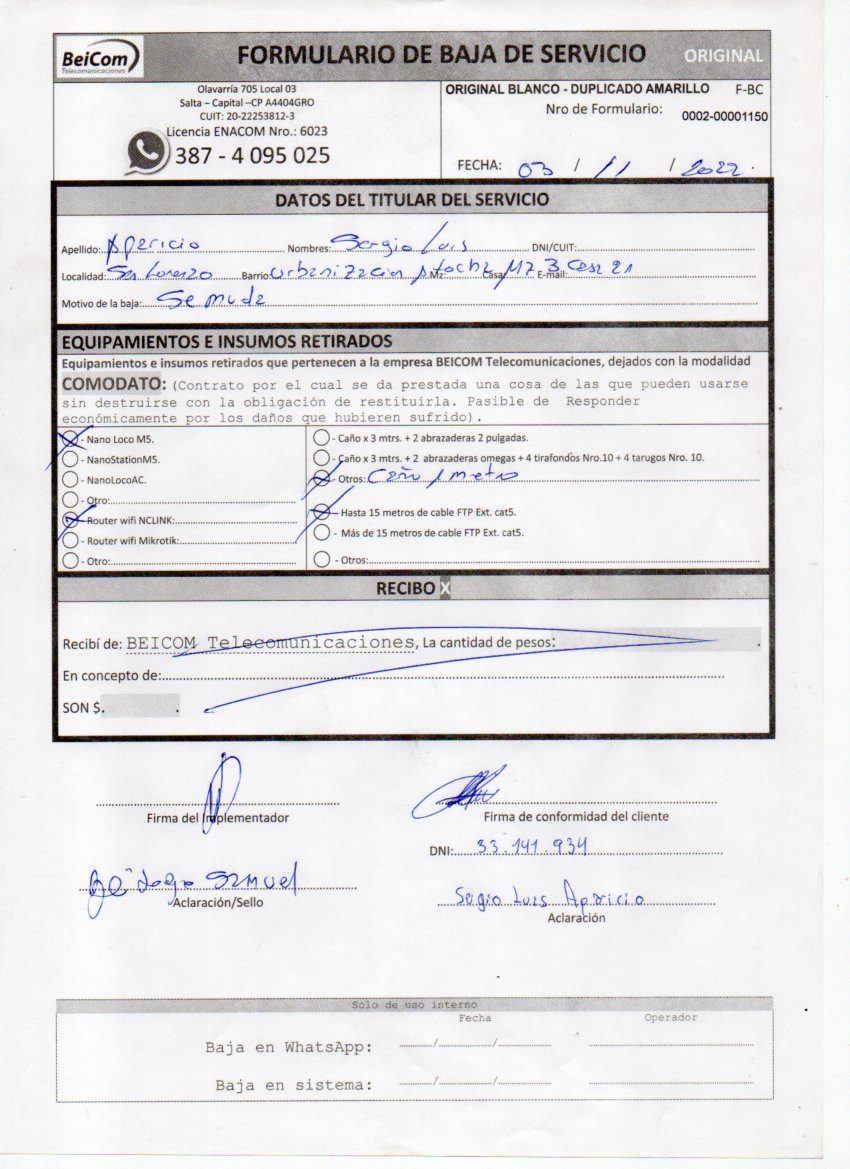 BeiCom
Telecomunicaciones
FORMULARIO DE BAJA DE SERVICIO
ORIGINAL
Olavarría 705 Local 03
Salta – Capital –CP A4404GRO
CUIT: 20-22253812-3
Licencia ENACOM Nro.: 6023
387 - 4 095 025
ORIGINAL BLANCO - DUPLICADO AMARILLO F-BC
Nro de Formulario: 0002-00001150
FECHA: 03 / 11 / 2022
DATOS DEL TITULAR DEL SERVICIO
Apellido: Aparicio Nombres: Sergio Luis DNI/CUIT:
Localidad: San Lorenzo Barrio: Urbanizacion Mz: Casa: MZ 3 Casa 21 E-mail:
Motivo de la baja: Se muda
EQUIPAMIENTOS E INSUMOS RETIRADOS
Equipamientos e insumos retirados que pertenecen a la empresa BEICOM Telecomunicaciones, dejados con la modalidad
COMODATO: (Contrato por el cual se da prestada una cosa de las que pueden usarse
sin destruirse con la obligación de restituirla. Pasible de Responder
económicamente por los daños que hubieren sufrido).
- Nano Loco M5.
- NanoStationM5.
- NanoLocoAC.
- Otro:
- Router wifi NCLINK:
- Router wifi Mikrotik:
- Otro:
- Caño x 3 mtrs. + 2 abrazaderas 2 pulgadas.
- Caño x 3 mtrs. + 2 abrazaderas omegas + 4 tirafondos Nro.10 + 4 tarugos Nro. 10.
- Otros: Caño 1 metro
- Hasta 15 metros de cable FTP Ext. cat5.
- Más de 15 metros de cable FTP Ext. cat5.
- Otros:
RECIBO X
Recibí de: BEICOM Telecomunicaciones, La cantidad de pesos:
En concepto de:
SON $.
Firma del Implementador
Firma de conformidad del cliente
DNI: 33.141.934
Samuel
Aclaración/Sello
Sergio Luis Aparicio
Aclaración
Solo de uso interno
Fecha Operador
Baja en WhatsApp: / /
Baja en sistema: / /